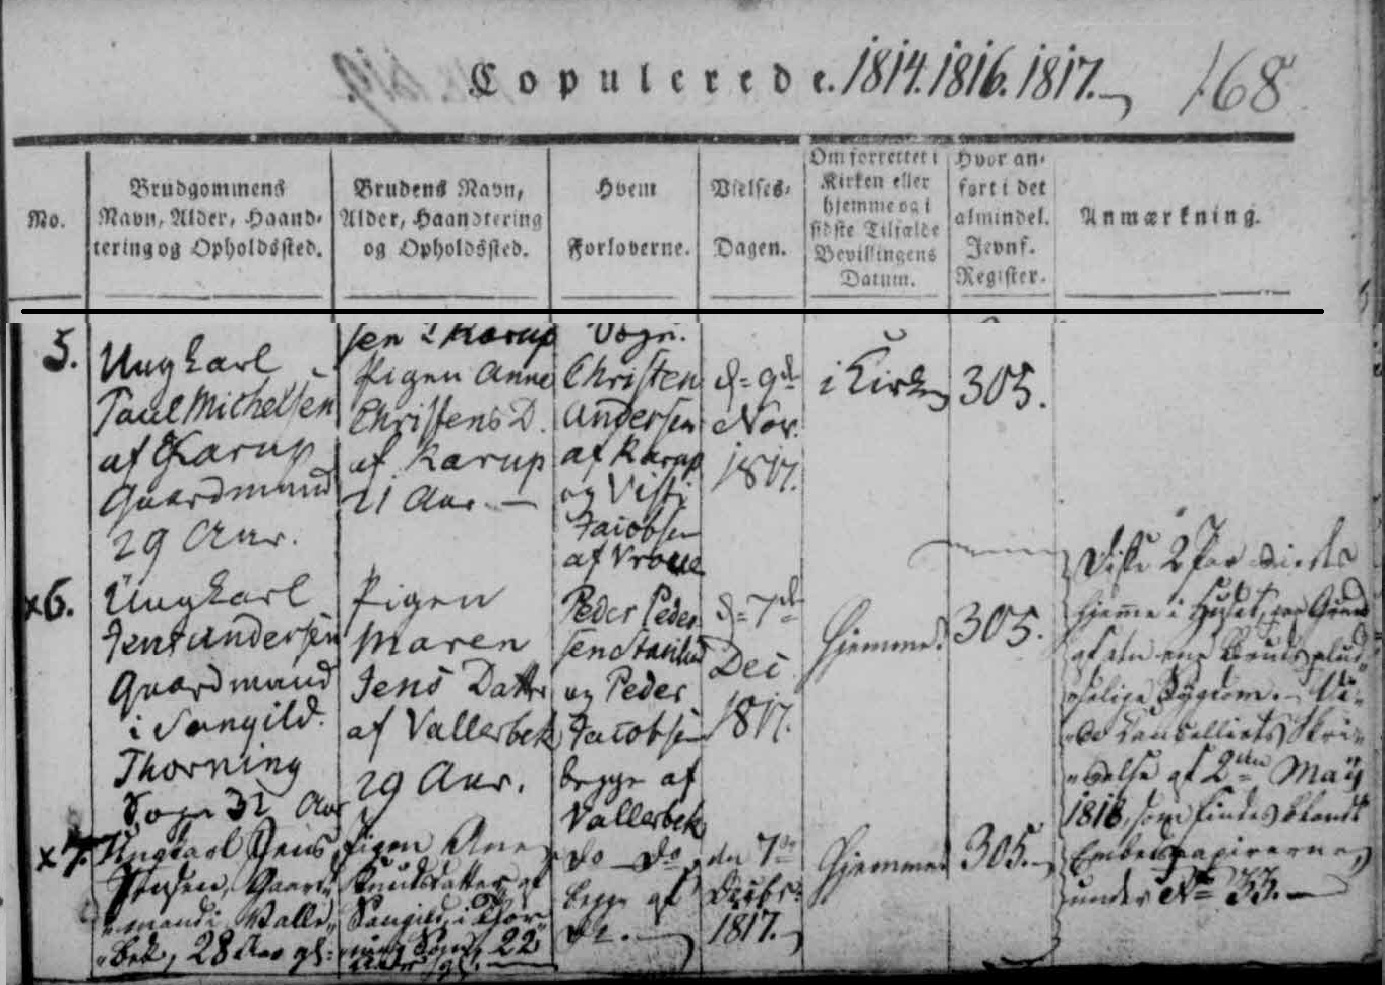 Copulerede. 1814. 1816. 1817. 168
No.
Brudgommens
Navn, Alder, Haand-
tering og Opholdssted.
Brudens Navn,
Alder, Haandtering
og Opholdssted.
Hvem
Forloverne.
Vielses-
Dagen.
Om forrettet i
Kirken eller
hjemme og i
sidste Tilfælde
Bevillingens
Datum.
Hvor an-
ført i det
almindel.
Jevnf.
Register.
Anmærkning.
sen i Karup
Vogn.
5.
Ungkarl
Paul Michelsen
af Karup
Gaardmand
29 Aar.
Pigen Anne
Christens D.
af Karup
21 Aar. —
Christen
Andersen
af Karup
og Visti
Jacobsen
af Vroue
d= 9de
Nov.
1817.
i Kirken
305.
x6.
Ungkarl
Jens Andersen
Gaardmand
i Sangild.
Thorning
Sogn 32 Aar
Pigen
Maren
Jens Datter
af Vallerbek
29 Aar.
Peder Peder
sen
og Peder
Jacobsen
begge af
Vallerbek
d= 7de
Dec
1817.
Hjemme.
305.
Disse 2 Par viedes
hjemme i Huset, paa Grund
af den ene Bruds plud-
selige Sygdom.
Cancelliets Skri-
velse af 2den May
1818, som findes blandt
Embedspapirerne,
under No 33. —
x7.
Ungkarl Jens
Jensen, Gaard-
mand i Valler-
bek, 28 Aar gl:
Pigen Ane
Knudsdatter, af
Sangild, i Thor
ning Sogn, 22
Aar gl.
do do
begge af
do. —
den 7de
Decbr:
1817.
Hjemme
305. —